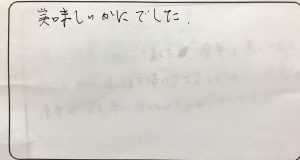 美味しいかにでした.